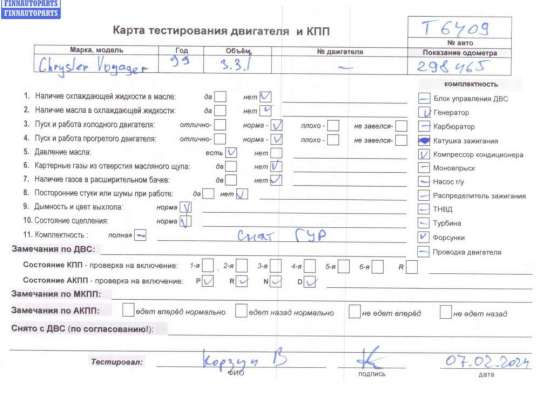 FINNAUTOPARTS
FINNAUTOPARTS
Карта тестирования двигателя и КПП
Т6409
№ авто
Марка, модель Год Объём № двигателя Показание одометра
Chrysler Voyager 99 3.3i — 298465
комплектность
1. Наличие охлаждающей жидкости в масле: да нет
2. Наличие масла в охлаждающей жидкости: да нет
3. Пуск и работа холодного двигателя: отлично- норма - плохо - не завелся-
4. Пуск и работа прогретого двигателя: отлично- норма - плохо - не завелся-
5. Давление масла: есть нет
6. Картерные газы из отверстия масляного щупа: да нет
7. Наличие газов в расширительном бачке: да нет
8. Посторонние стуки или шумы при работе: да нет
9. Дымность и цвет выхлопа: норма
10. Состояние сцепления: норма
11. Комплектность : полная — снят ГУР
Блок управления ДВС
Генератор
Карбюратор
Катушка зажигания
Компрессор кондиционера
Моновпрыск
Насос г/у
Распределитель зажигания
ТНВД
Турбина
Форсунки
Проводка двигателя
Замечания по ДВС:
Состояние КПП - проверка на включение: 1-я 2-я 3-я 4-я 5-я 6-я R
Состояние АКПП - проверка на включение: P R N D
Замечания по МКПП:
Замечания по АКПП: едет вперёд нормально едет назад нормально не едет вперёд не едет назад
Снято с ДВС (по согласованию!):
Тестировал: Корзун В 07.02.2024
ФИО подпись дата